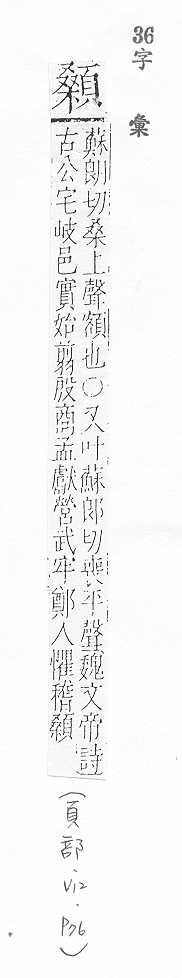 36字彙
顙
蘇朗切桑上聲額也○又叶蘇郎切喪平聲魏文帝詩
古公宅岐邑實始翦殷商孟獻營武牢鄭人懼稽顙
(頁部.V12.P76)